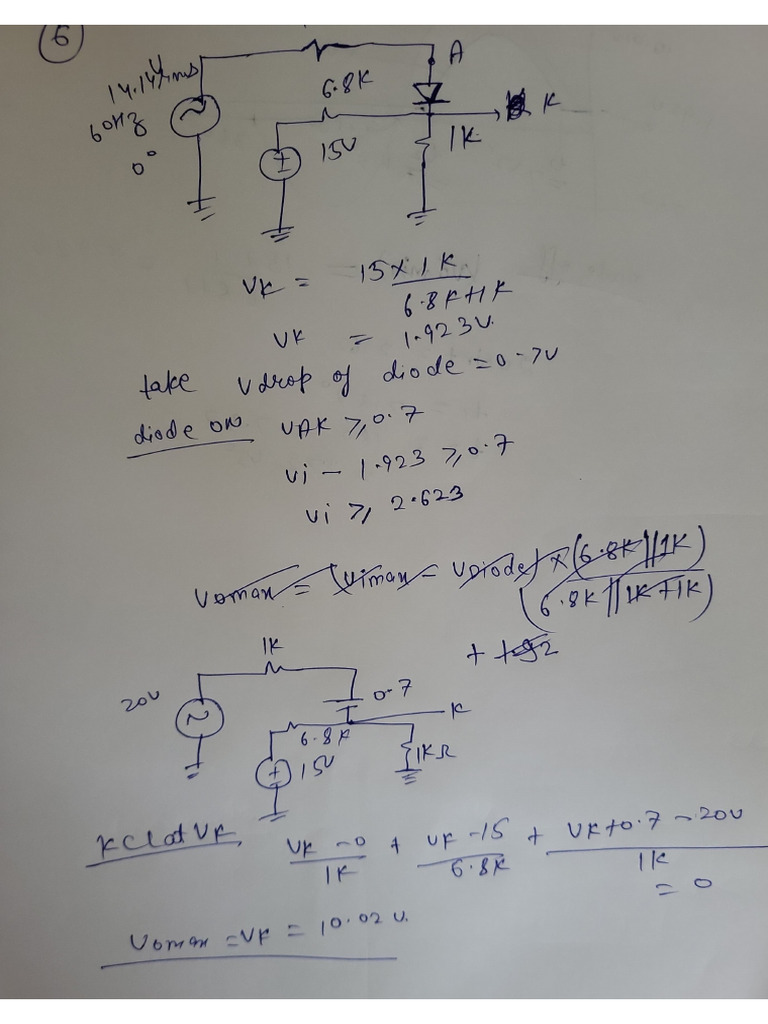 6
14.14Vrms
60HZ
0°
A
6.8K
K
15V
1K
VK = 15 × 1K / 6.8K+1K
VK = 1.923V.
take Vdrop of diode = 0.7V
diode ON VAK ≥ 0.7
Vi - 1.923 ≥ 0.7
Vi ≥ 2.623
Vomax = (Vimax - VDiode) × (6.8K||1K) / (6.8K||1K+1K)
+ 1.92
1K
20V
0.7
K
6.8K
15V
1KΩ
KCL at VK, VK-0 / 1K + VK-15 / 6.8K + VK+0.7-20V / 1K
= 0
Vomax = VK = 10.02V.